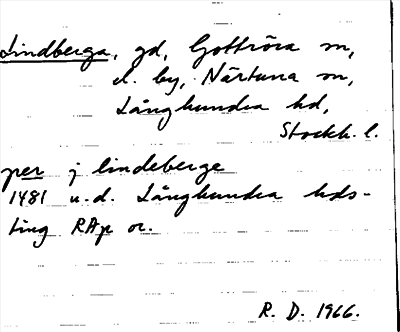 Lindberga, gd, Gottröra sn,
el. by, Närtuna sn,
Långhundra hd,
Stockh. l.
per j lindeberge
1481 u.d. Långhundra hds-
ting RAp or.
R. D. 1966.